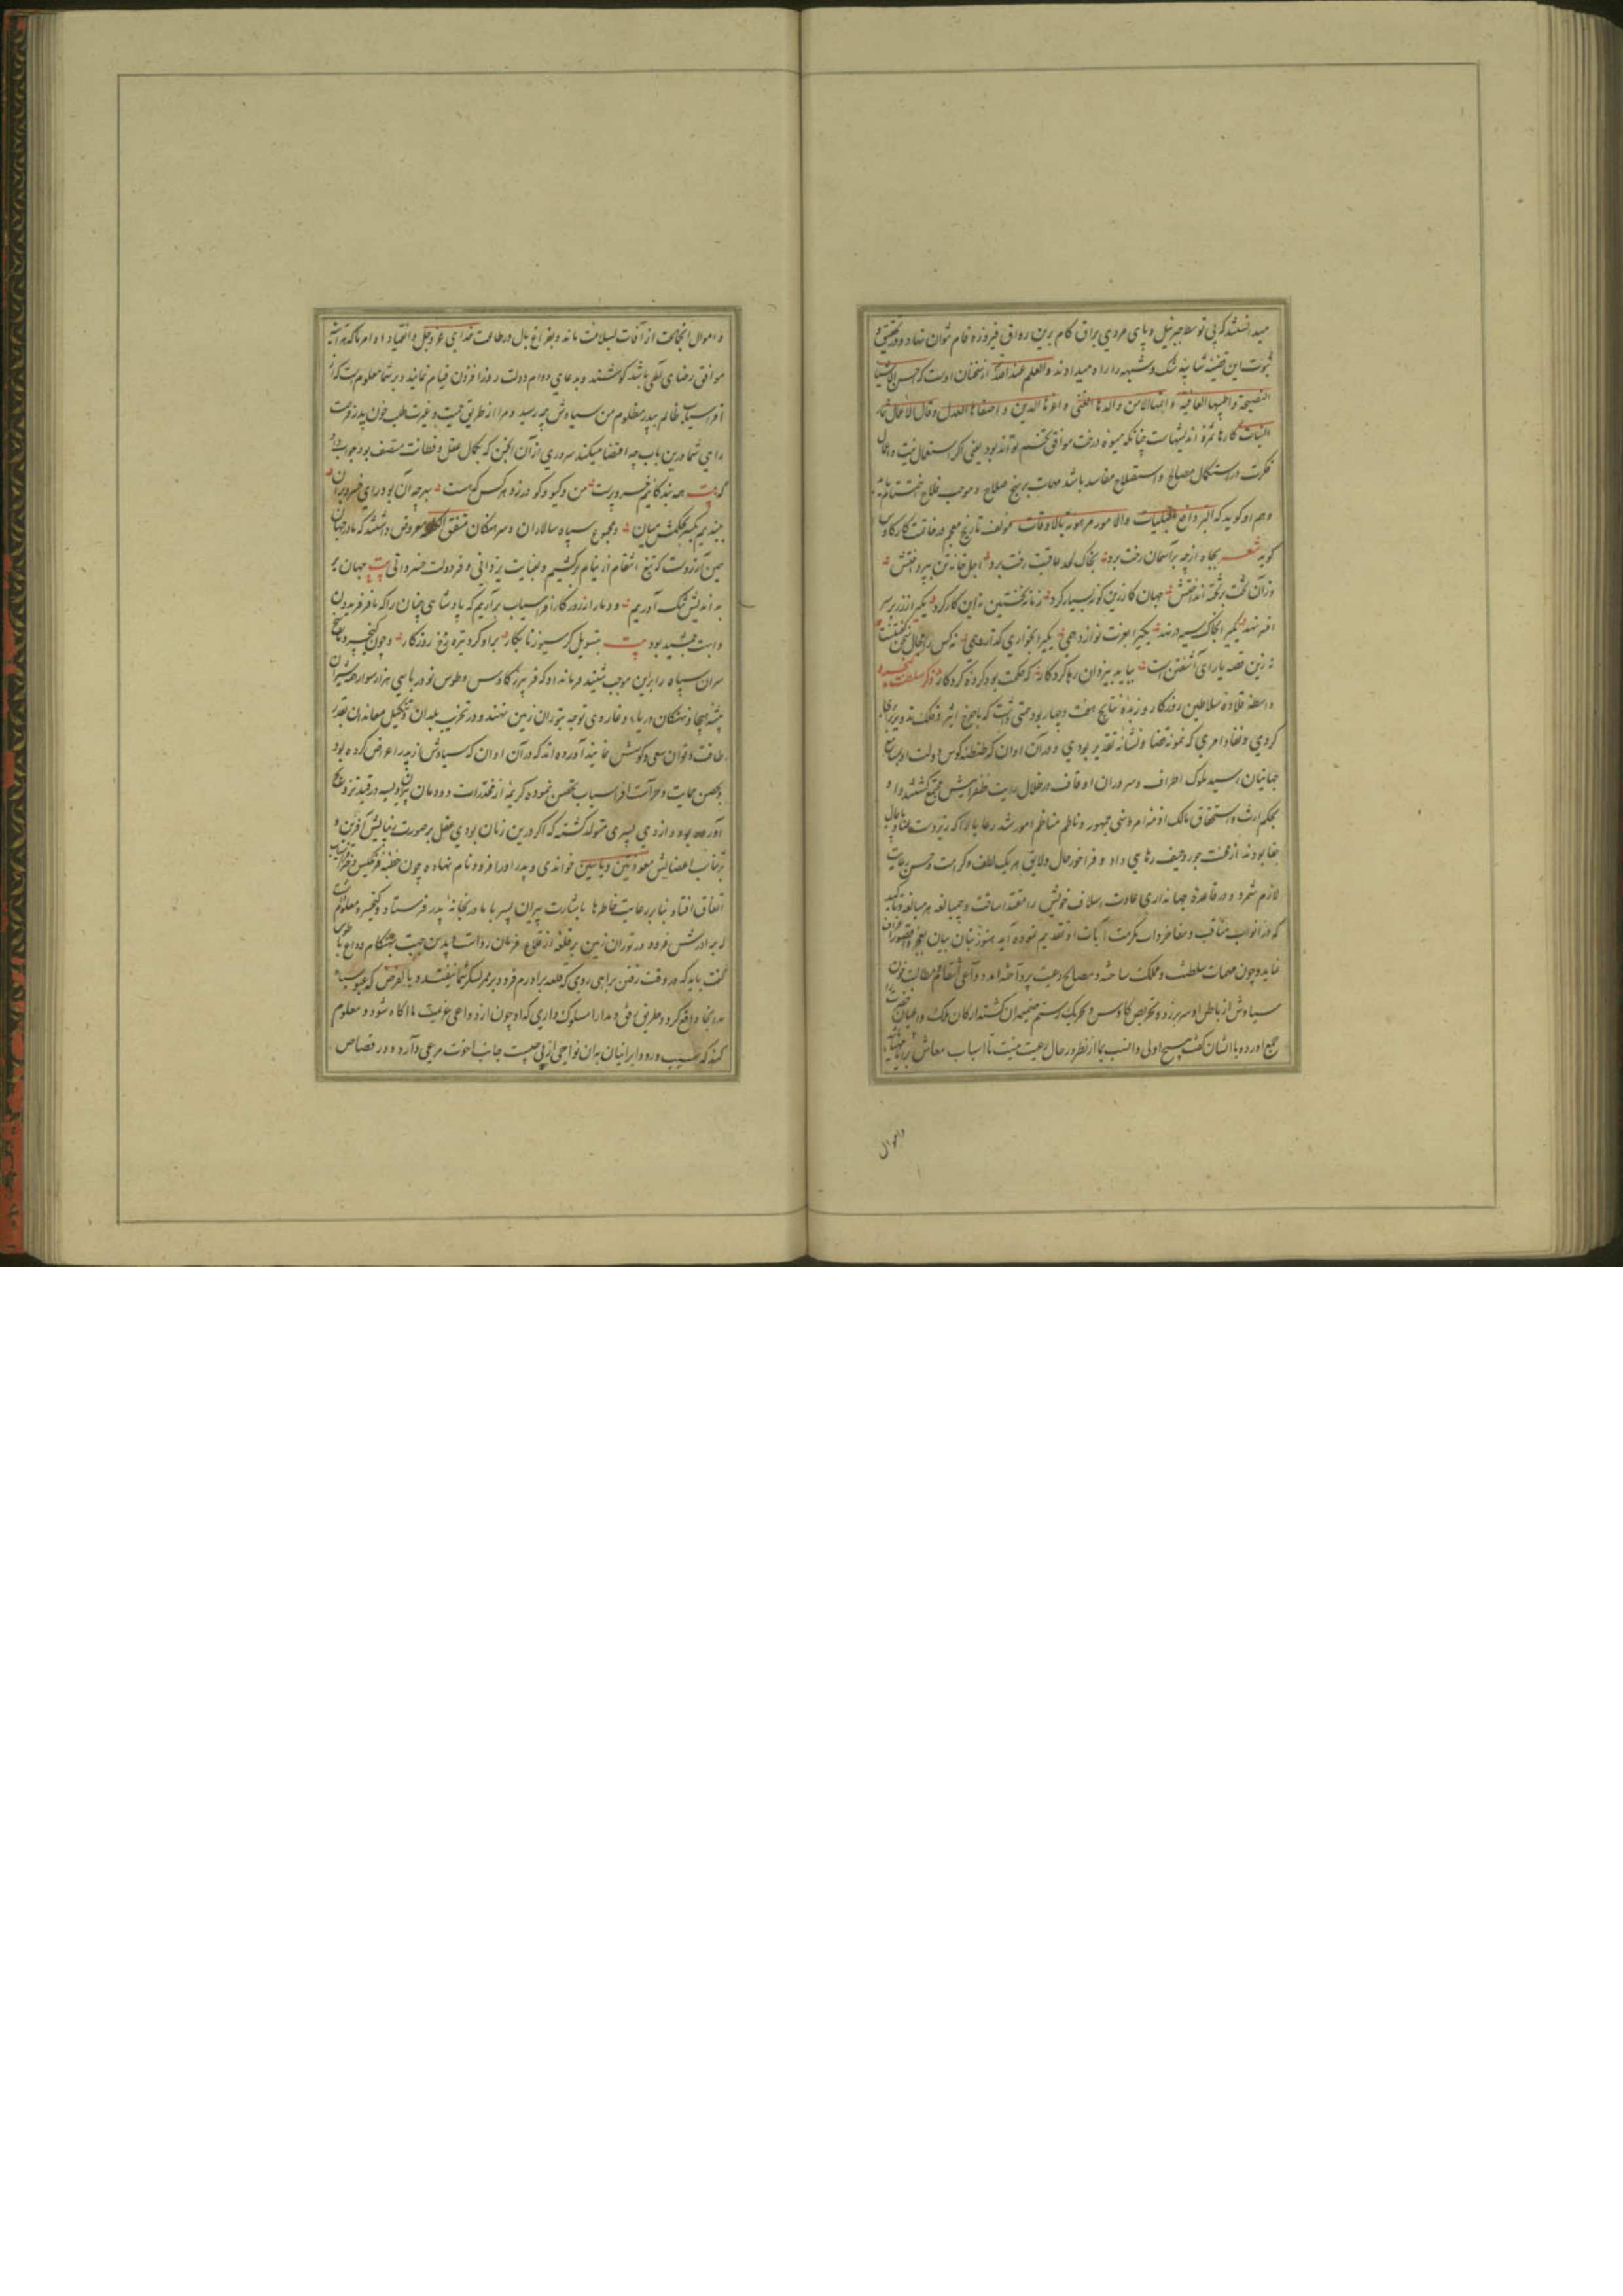 میدانستند که بی توسط جبرئیل و پای مردی براق کام برین رواق فیروزه فام نتوان نهاد و در تحقیق و
ثبوت این قضیه شایبهٔ شک و شبهه را راه میدادند و العلم عند الله از سخنان اوست که احسن الاشیا
النصیحة و اطیبها العافیة و ابهاها الامن و الذها الغنی و اعزها الدین و اصفاها العدل و قال الاعمال ثمار
النیات کارها ثمرهٔ اندیشهاست چنانکه میوه درخت موافق تخم تواند بود یعنی اگر استعمال نیت و اعمال
فکرت در استکمال مصالح و استصلاح مفاسد باشد مهمات بر نهج صلاح و موجب فلاح اختتام یابد
و هم او گوید که البر دافع البلیات و الامور مرهونة بالاوقات مؤلف تاریخ معجم در خاتمت کار کاوس
گوید شعر بجاه ارچه بر آسمان رخت برد بخاک لحد عاقبت رخت برد اجل خانهٔ تن بپرداختش
وزان تخت بر تخته انداختش جهان کار زین گونه بسیار کرد زمانه نخستین نه این کار کرد یکی را ز زر بر سر
افسر نهد یکی را بخاک سیه در نهد یکی را بعزت نوازد همی یکی را بخواری گذارد همی نه کس را مجال سخن گفتنست
نه زین قصه یارای آشفتن است بباید بیزدان رها کرد کار که حکمت بود کردهٔ کردگار ذکر سلطنت کیخسرو
واسطهٔ قلادهٔ سلاطین روزگار و زبدهٔ نتایج هفت و چهار بود همتی داشت که با چرخ اثیر و فلک تدویر برابری
کردی و نفاد امری که نمونهٔ قضا و نشانهٔ تقدیر بودی و در آن اوان که طنطنهٔ کوس دولت او بسامع
جهانیان رسید ملوک اطراف و سروران اوقاف در ظلال رایت ظفر آیتش مجتمع گشتند و او
بحکم ارث و استحقاق مالک ازمهٔ امر و نهی جمهور و ناظم مناظم امور شد رعایا را که زیردست عنا و پایمال
جفا بودند از محنت جور و حیف رهایی داد و فراخور حال و لایق هر یک لطف و کرامت و حسن رعایت
لازم شمرد و در قاعدهٔ جهانداری عادت اسلاف خویش را مقتدا ساخت و بمبالغه هر مبالغه و تاکید
که در ابواب مناقب و مفاخر و اب مکرمت آیات او تقدیم نموده آید هنوز زبان بیان بعجز و قصور اعتراف
نماید و چون مهمات سلطنت و مملکت ساخته و مصالح رعیت پرداخته آمد دواعی انتقام و مطالبت خون
سیاوش از باطن او سر بر زد و تحریض کاوس و تحریک رستم ضمیمهٔ آن گشت ارکان ملک و اعیان حضرت را
جمع آورده با ایشان گفت صحیح اولی و انسب بما از نظر در حال رعیت نیست تا اسباب معاش برایشان مهیا
و اموال
و اموال انجاحت از آفات بسلامت ماند و بفراغ بال در طاعت خدای عز و جل و انقیاد اوامر ما که هر آینه
موافق رضای الهی باشد کوشند و بدعای دوام دولت روزافزون قیام نمایند و بر شما معلوم است که از
افراسیاب ظالم بپدر مظلوم من سیاوش چه رسید و مرا از طریق حمیت و غیرت طلب خون پدر نوبت
رای شما درین باب چه اقتضا میکند سروری از آن انجمن که بکمال عقل و فطانت متصف بود جواب داد
که بیت همه بندگانیم خسرو پرست من و گیو و گودرز و هر کس که هست بهرچه آن بود رای خسرو بران
ببندیم یکسر بکینش میان و مجموع سپاه سالاران و سرهنگان متفق الکلمه معروض داشتند که ما در جهان
همین آرزوست که تیغ انتقام از نیام برکشیم و بعنایت یزدانی و فر دولت خسروانی بیت جهان بر
بد اندیش تنگ آوریم و دمار از روزگار افراسیاب برآریم که پادشاهی چنان را که با فر فریدون
و ابهت جمشید بود بیت بتسویل گرسیوز نابکار بر او کرد تیره رخ روزگار و چون کیخسرو پاسخ
سران سپاه را برین موجب شنید فرمانداد که فریبرز کاوس و طوس نوذر با سی هزار سوار که شیران
بیشهٔ هیجا و نهنگان دریای وغا روی توجه بتوران زمین نهند و در تخریب بلدان و تنکیل معاندان بقدر
طاقت و توان سعی و کوشش نمایند آورده‌اند که در آن اوان که سیاوش از پدر اعراض کرده بود
و بحصن حمایت و حراست افراسیاب تحصن نموده کریمهٔ از مخدرات دودمان پیران ویسه در قید تزویج
آورده بود و ازوی پسری متولد گشته که اگر درین زمان بودی عقل بر صورت زیبایش آفرین و
بر تناسب اعضایش معوذتین و یاسین خواندی و پدر او را فرود نام نهاده چون خطبهٔ فرنگیس دختر افراسیاب
اتفاق افتاد بنا بر رعایت خاطرها باشارت پیران پسر با مادر بخانهٔ پدر فرستاد و کیخسرو معلوم داشت
که برادرش فرود در توران زمین بر قلعهٔ از قلاع فرمان رواست بدین جهت بهنگام وداع با طوس
گفت باید که در وقت رفتن براهی روی که قلعه برادرم فرود بر ممر لشکر شما نیفتد و بالفرض که عبور سپاه
بدانجا واقع گردد طریق رفق و مدارا مسلوک داری که او چون از دواعی عزیمت ما آگاه شود و معلوم
کند که سبب ورود ایرانیان بدان نواحی از پی چیست جانب اخوت مرعی دارد و در قصاص